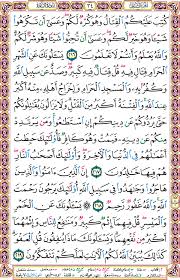 ٣٤
كُتِبَ عَلَيْكُمُ ٱلْقِتَالُ وَهُوَ كُرْهٌ لَّكُمْ وَعَسَىٰٓ أَن تَكْرَهُوا۟
شَيْـًٔا وَهُوَ خَيْرٌ لَّكُمْ وَعَسَىٰٓ أَن تُحِبُّوا۟ شَيْـًٔا وَهُوَ شَرٌّ لَّكُمْ
وَٱللَّهُ يَعْلَمُ وَأَنتُمْ لَا تَعْلَمُونَ ٢١٦ يَسْـَٔلُونَكَ عَنِ ٱلشَّهْرِ
ٱلْحَرَامِ قِتَالٍ فِيهِ قُلْ قِتَالٌ فِيهِ كَبِيرٌ وَصَدٌّ عَن سَبِيلِ ٱللَّهِ
وَكُفْرٌۢ بِهِۦ وَٱلْمَسْجِدِ ٱلْحَرَامِ وَإِخْرَاجُ أَهْلِهِۦ مِنْهُ أَكْبَرُ
عِندَ ٱللَّهِ وَٱلْفِتْنَةُ أَكْبَرُ مِنَ ٱلْقَتْلِ وَلَا يَزَالُونَ يُقَٰتِلُونَكُمْ
حَتَّىٰ يَرُدُّوكُمْ عَن دِينِكُمْ إِنِ ٱسْتَطَٰعُوا۟ وَمَن يَرْتَدِدْ
مِنكُمْ عَن دِينِهِۦ فَيَمُتْ وَهُوَ كَافِرٌ فَأُو۟لَٰٓئِكَ حَبِطَتْ
أَعْمَٰلُهُمْ فِى ٱلدُّنْيَا وَٱلْـَٔاخِرَةِ وَأُو۟لَٰٓئِكَ أَصْحَٰبُ ٱلنَّارِ
هُمْ فِيهَا خَٰلِدُونَ ٢١٧ إِنَّ ٱلَّذِينَ ءَامَنُوا۟ وَٱلَّذِينَ هَاجَرُوا۟
وَجَٰهَدُوا۟ فِى سَبِيلِ ٱللَّهِ أُو۟لَٰٓئِكَ يَرْجُونَ رَحْمَتَ
ٱللَّهِ وَٱللَّهُ غَفُورٌ رَّحِيمٌ ٢١٨ يَسْـَٔلُونَكَ عَنِ ٱلْخَمْرِ
وَٱلْمَيْسِرِ قُلْ فِيهِمَآ إِثْمٌ كَبِيرٌ وَمَنَٰفِعُ لِلنَّاسِ وَإِثْمُهُمَآ
أَكْبَرُ مِن نَّفْعِهِمَا وَيَسْـَٔلُونَكَ مَاذَا يُنفِقُونَ قُلِ ٱلْعَفْوَ
كَذَٰلِكَ يُبَيِّنُ ٱللَّهُ لَكُمُ ٱلْـَٔايَٰتِ لَعَلَّكُمْ تَتَفَكَّرُونَ